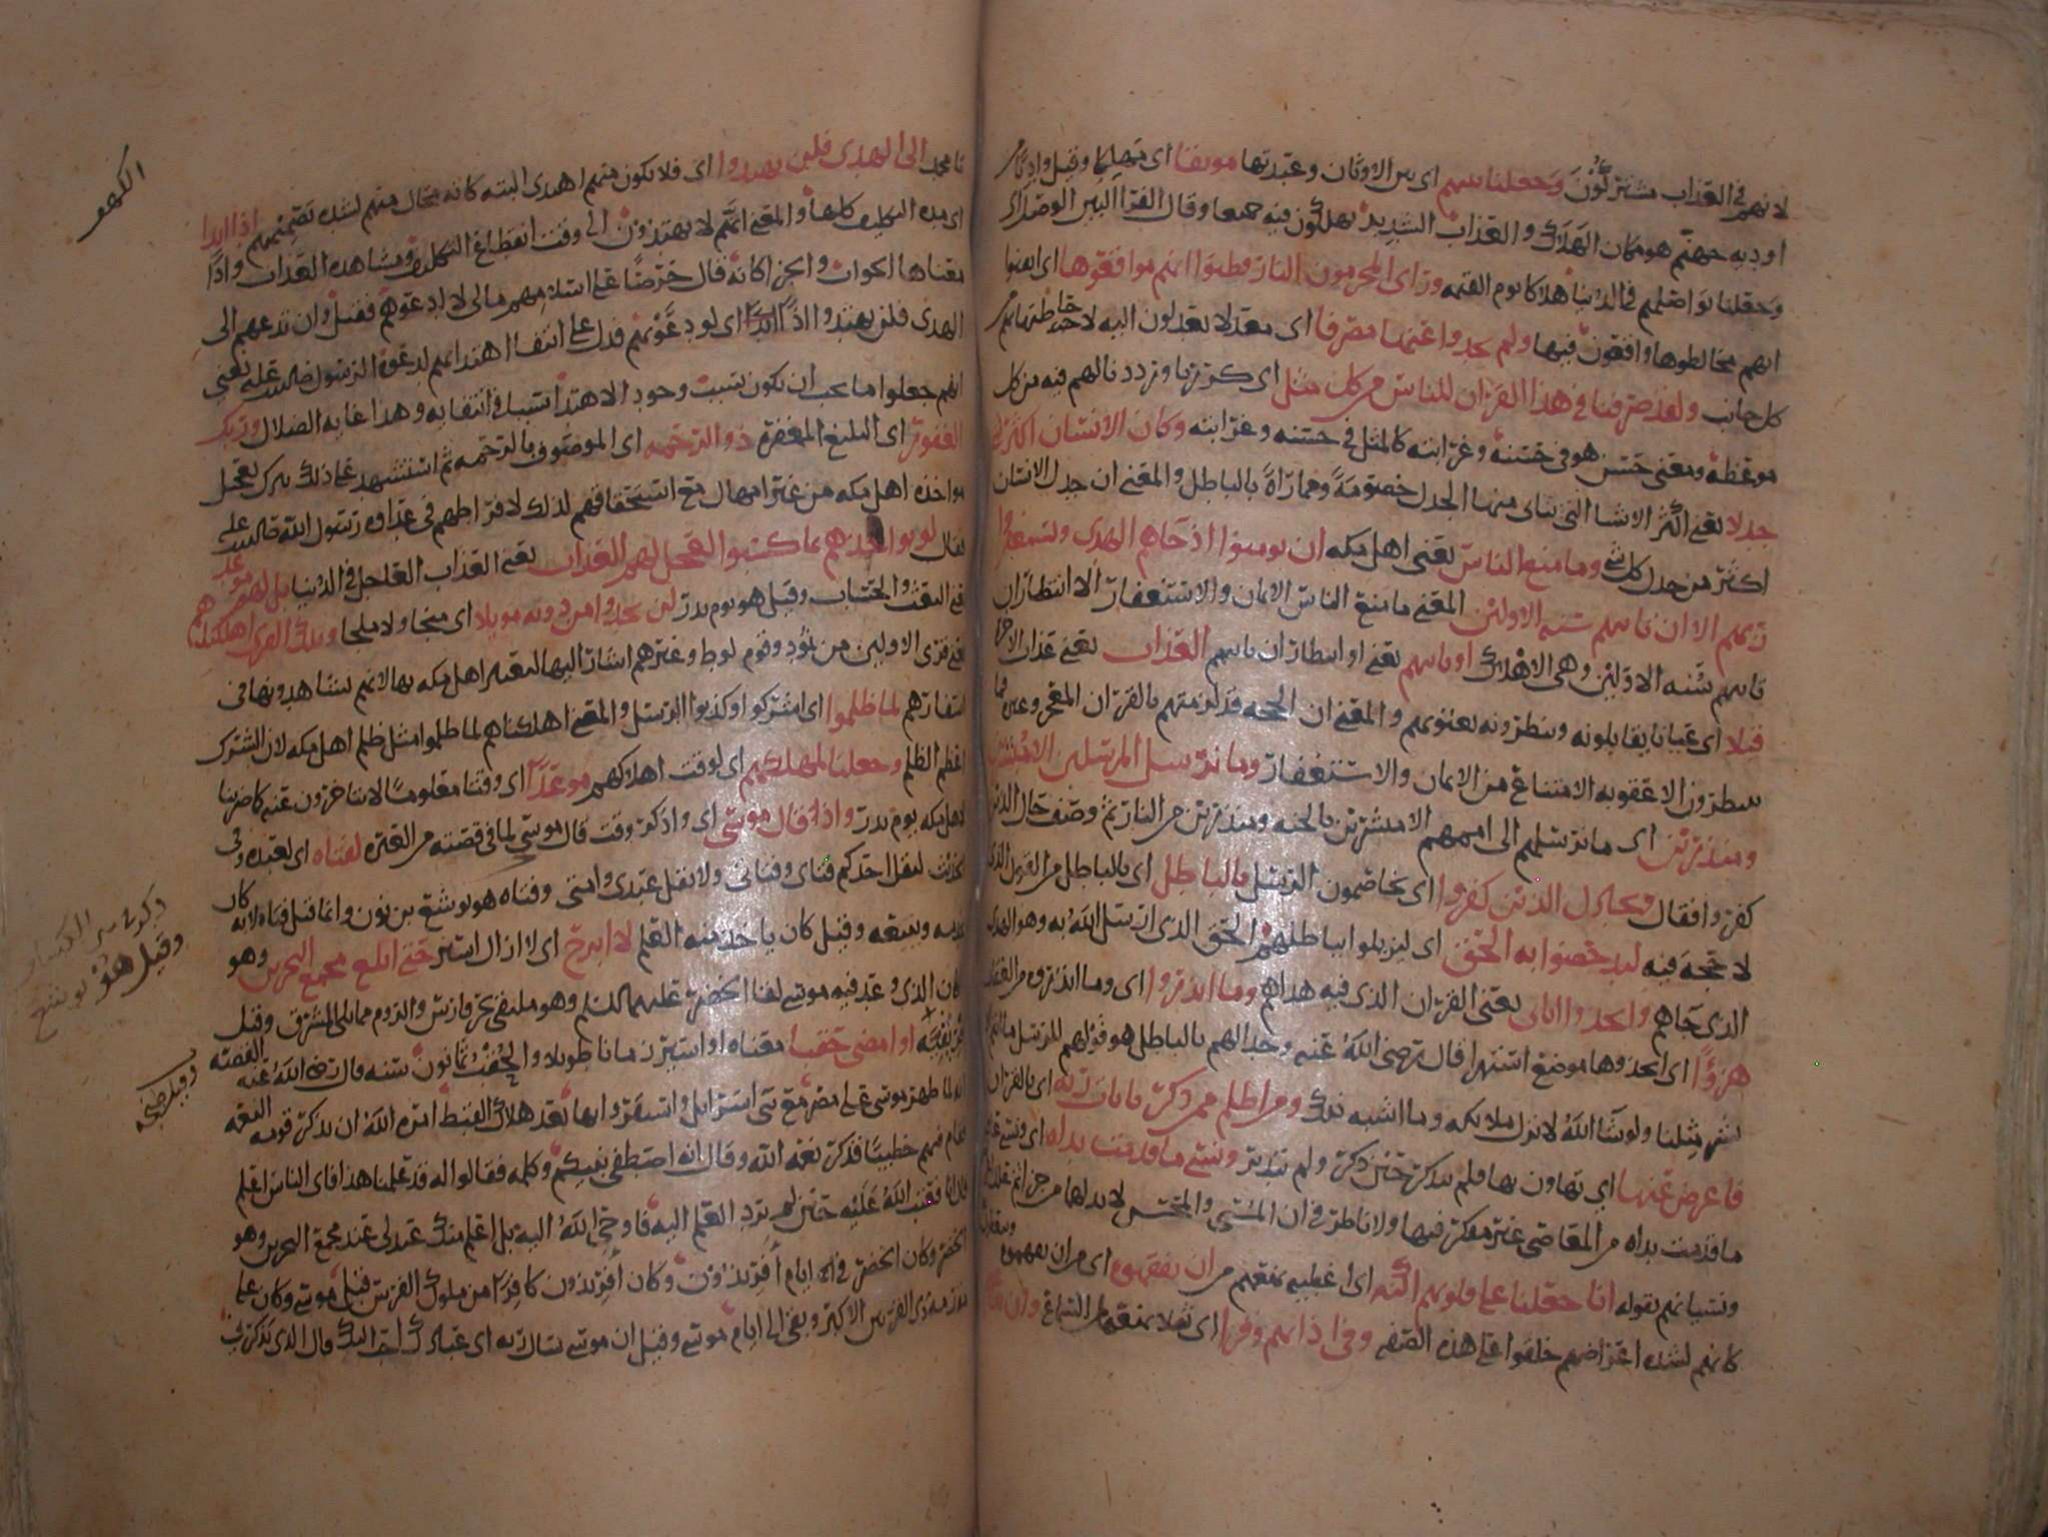 لانهم في العذاب مشتركون وجعلنا بينهم اي بين الاوثان وعبدتها موبقا اي مهلكا وقيل واد
او دية جهنم هو مكان الهلاك والعذاب الشديد يهلكون فيه جميعا وقال الفرا البين الوصل اي
وجعلنا تواصلهم في الدنيا هلاكا يوم القيمه وراى المجرمون النار فظنوا انهم مواقعوها اي ايقنوا
انهم مخالطوها واقعون فيها ولم يجدوا عنها مصرفا اي معدلا يعدلون اليه لاحاطتها بهم من
كل جانب ولقد صرفنا في هذا القران للناس من كل مثل اي كررنا ورددنا لهم فيه من كل
موعظة ومعنى حسن هو في حسنه وغرابته كالمثل في حسنه وغرابته وكان الانسان اكثر شي
جدلا يعني اكثر الاشيا التي يتاتى منها الجدل خصومة ومماراة بالباطل والمعنى ان جدل الانسان
اكثر من جدل كل شي وما منع الناس يعني اهل مكه ان يومنوا اذ جاهم الهدى ويستغفروا
ربهم الا ان تاتيهم سنه الاولين المعنى ما منع الناس الايمان والاستغفار الا انتظار ان
تاتيهم سنه الاولين وهي الاهلاك او ياتيهم يعني او انتظار ان ياتيهم العذاب يعني عذاب الاخرة
قبلا اي عيانا يقابلونه وينظرونه بعيونهم والمعنى ان الحجه قد لزمتهم بالقران المعجز وغيره فما
ينتظرون الا عقوبه الامتناع من الايمان والاستغفار وما نرسل المرسلين الا مبشرين
ومنذرين اي ما نرسلهم الى اممهم الا مبشرين بالجنه ومنذرين من النار ثم وصف حال الذين
كفروا فقال ويجادل الذين كفروا اي يخاصمون الرسل بالباطل اي بالباطل من القول الذي
لا حجة فيه ليدحضوا به الحق اي ليزيلوا بباطلهم الحق الذي ارسل الله به وهو الهدى
الذي جاهم واتخذوا اياتي يعني القران الذي فيه هداهم وما انذروا اي وما انذروه من العذاب
هزوا اي اتخذوها موضع استهزا قال رضي الله عنه وجدالهم بالباطل هو قولهم للرسل ما انتم الا
بشر مثلنا ولو شا الله لانزل ملايكه وما اشبه ذلك ومن اظلم ممن ذكر بايات ربه اي بالقران
فاعرض عنها اي تهاون بها فلم يتذكر حين ذكر ولم يتدبر ونسي ما قدمت يداه اي ونسي
ما قدمت يداه من المعاصي غير مفكر فيها ولا ناظر في ان المسي والمحسن لا بد لهما من جزا ثم علل
ونسيانهم بقوله انا جعلنا على قلوبهم اكنة اي اغطيه تمنعهم من ان يفقهوه اي من ان يفهموه
كانهم لشده اعراضهم خلقوا على هذه الصفه وفي اذانهم وقرا اي ثقلا يمنعهم من السماع وان تدعهم
يا محمد الى الهدى فلن يهتدوا اي فلا يكون منهم اهتدى البته كانه محال منهم لشده تصميمهم اذا ابدا
اي مده التكليف كلها والمعنى انهم لا يهتدون الى وقت انقطاع التكليف ومشاهده العذاب واذا
معناها الجواب والجزا كانه قال حرصا على اسلامهم مالي لا ادعوهم فقيل وان تدعهم الى
الهدى فلن يهتدوا اذا ابدا اي لو دعوتهم فدل على انتفا اهتدايهم لدعوة الرسول صلى الله عليه يعني
انهم جعلوا ما يجب ان يكون بسبب وجود الاهتدا سببا في انتفايه وهذا غايه الضلال وربك
الغفور اي البليغ المغفرة ذو الرحمه اي الموصوف بالرحمه ثم استشهد على ذلك بترك تعجيل
مواخذه اهل مكه من غير امهال مع استحقاقهم لذلك لافراطهم في عداوة رسول الله صلى الله عليه
فقال لو يواخذهم بما كسبوا لعجل لهم العذاب يعني العذاب العاجل في الدنيا بل لهم موعد
يعني البعث والحساب وقيل هو يوم بدر لن يجدوا من دونه مويلا اي منجا ولا ملجا وتلك القرى اهلكناهم
يعني قرى الاولين من ثمود وقوم لوط وغيرهم اشار اليها ليعتبر اهل مكه بها لانهم يشاهدونها في
اسفارهم لما ظلموا اي اشركوا وكذبوا الرسل والمعنى اهلكناهم لما ظلموا مثل ظلم اهل مكه لان الشرك
اعظم الظلم وجعلنا لمهلكهم اي لوقت اهلاكهم موعدا اي وقتا معلوما لا يتاخرون عنه كما ضربنا
لاهل مكه يوم بدر واذ قال موسى اي واذكر وقت قال موسى لما في قصته من العبره لفتاه اي لعبده وفي
الحديث ليقل احدكم فتاي وفتاتي ولا يقل عبدي وامتي وفتاه هو يوشع بن نون وانما قيل فتاه لانه كان
يخدمه ويتبعه وقيل كان ياخذ منه العلم لا ابرح اي لا ازال اسير حتى ابلغ مجمع البحرين وهو
المكان الذي وعد فيه موسى لقا الخضر عليهما السلم وهو ملتقى بحر فارس والروم مما يلي المشرق وقيل
افريقيه او امضي حقبا معناه او اسير زمانا طويلا والحقب ثمانون سنه قال رضي الله عنه القصه
انه لما ظهر موسى على مصر مع بني اسرايل واستقروا بها بعد هلاك القبط امره الله ان يذكر قومه النعمه
فقام فيهم خطيبا فذكر نعمه الله وقال انه اصطفى نبيكم وكلمه فقالوا له قد علمنا هذا فاي الناس اعلم
قال انا فعتب الله عليه حين لم يرد العلم اليه فاوحى الله اليه بل اعلم منك عبد لي عند مجمع البحرين وهو
الخضر وكان الخضر في ايام افريذون وكان افريذون كافرا من ملوك الفرس قبل موسى وكان على
مقدمه ذي القرنين الاكبر وبقي الى ايام موسى وقيل ان موسى سال ربه اي عبادك احب اليك قال الذي يذكرني
الكهف
وقيل هو يوشع
وقيل